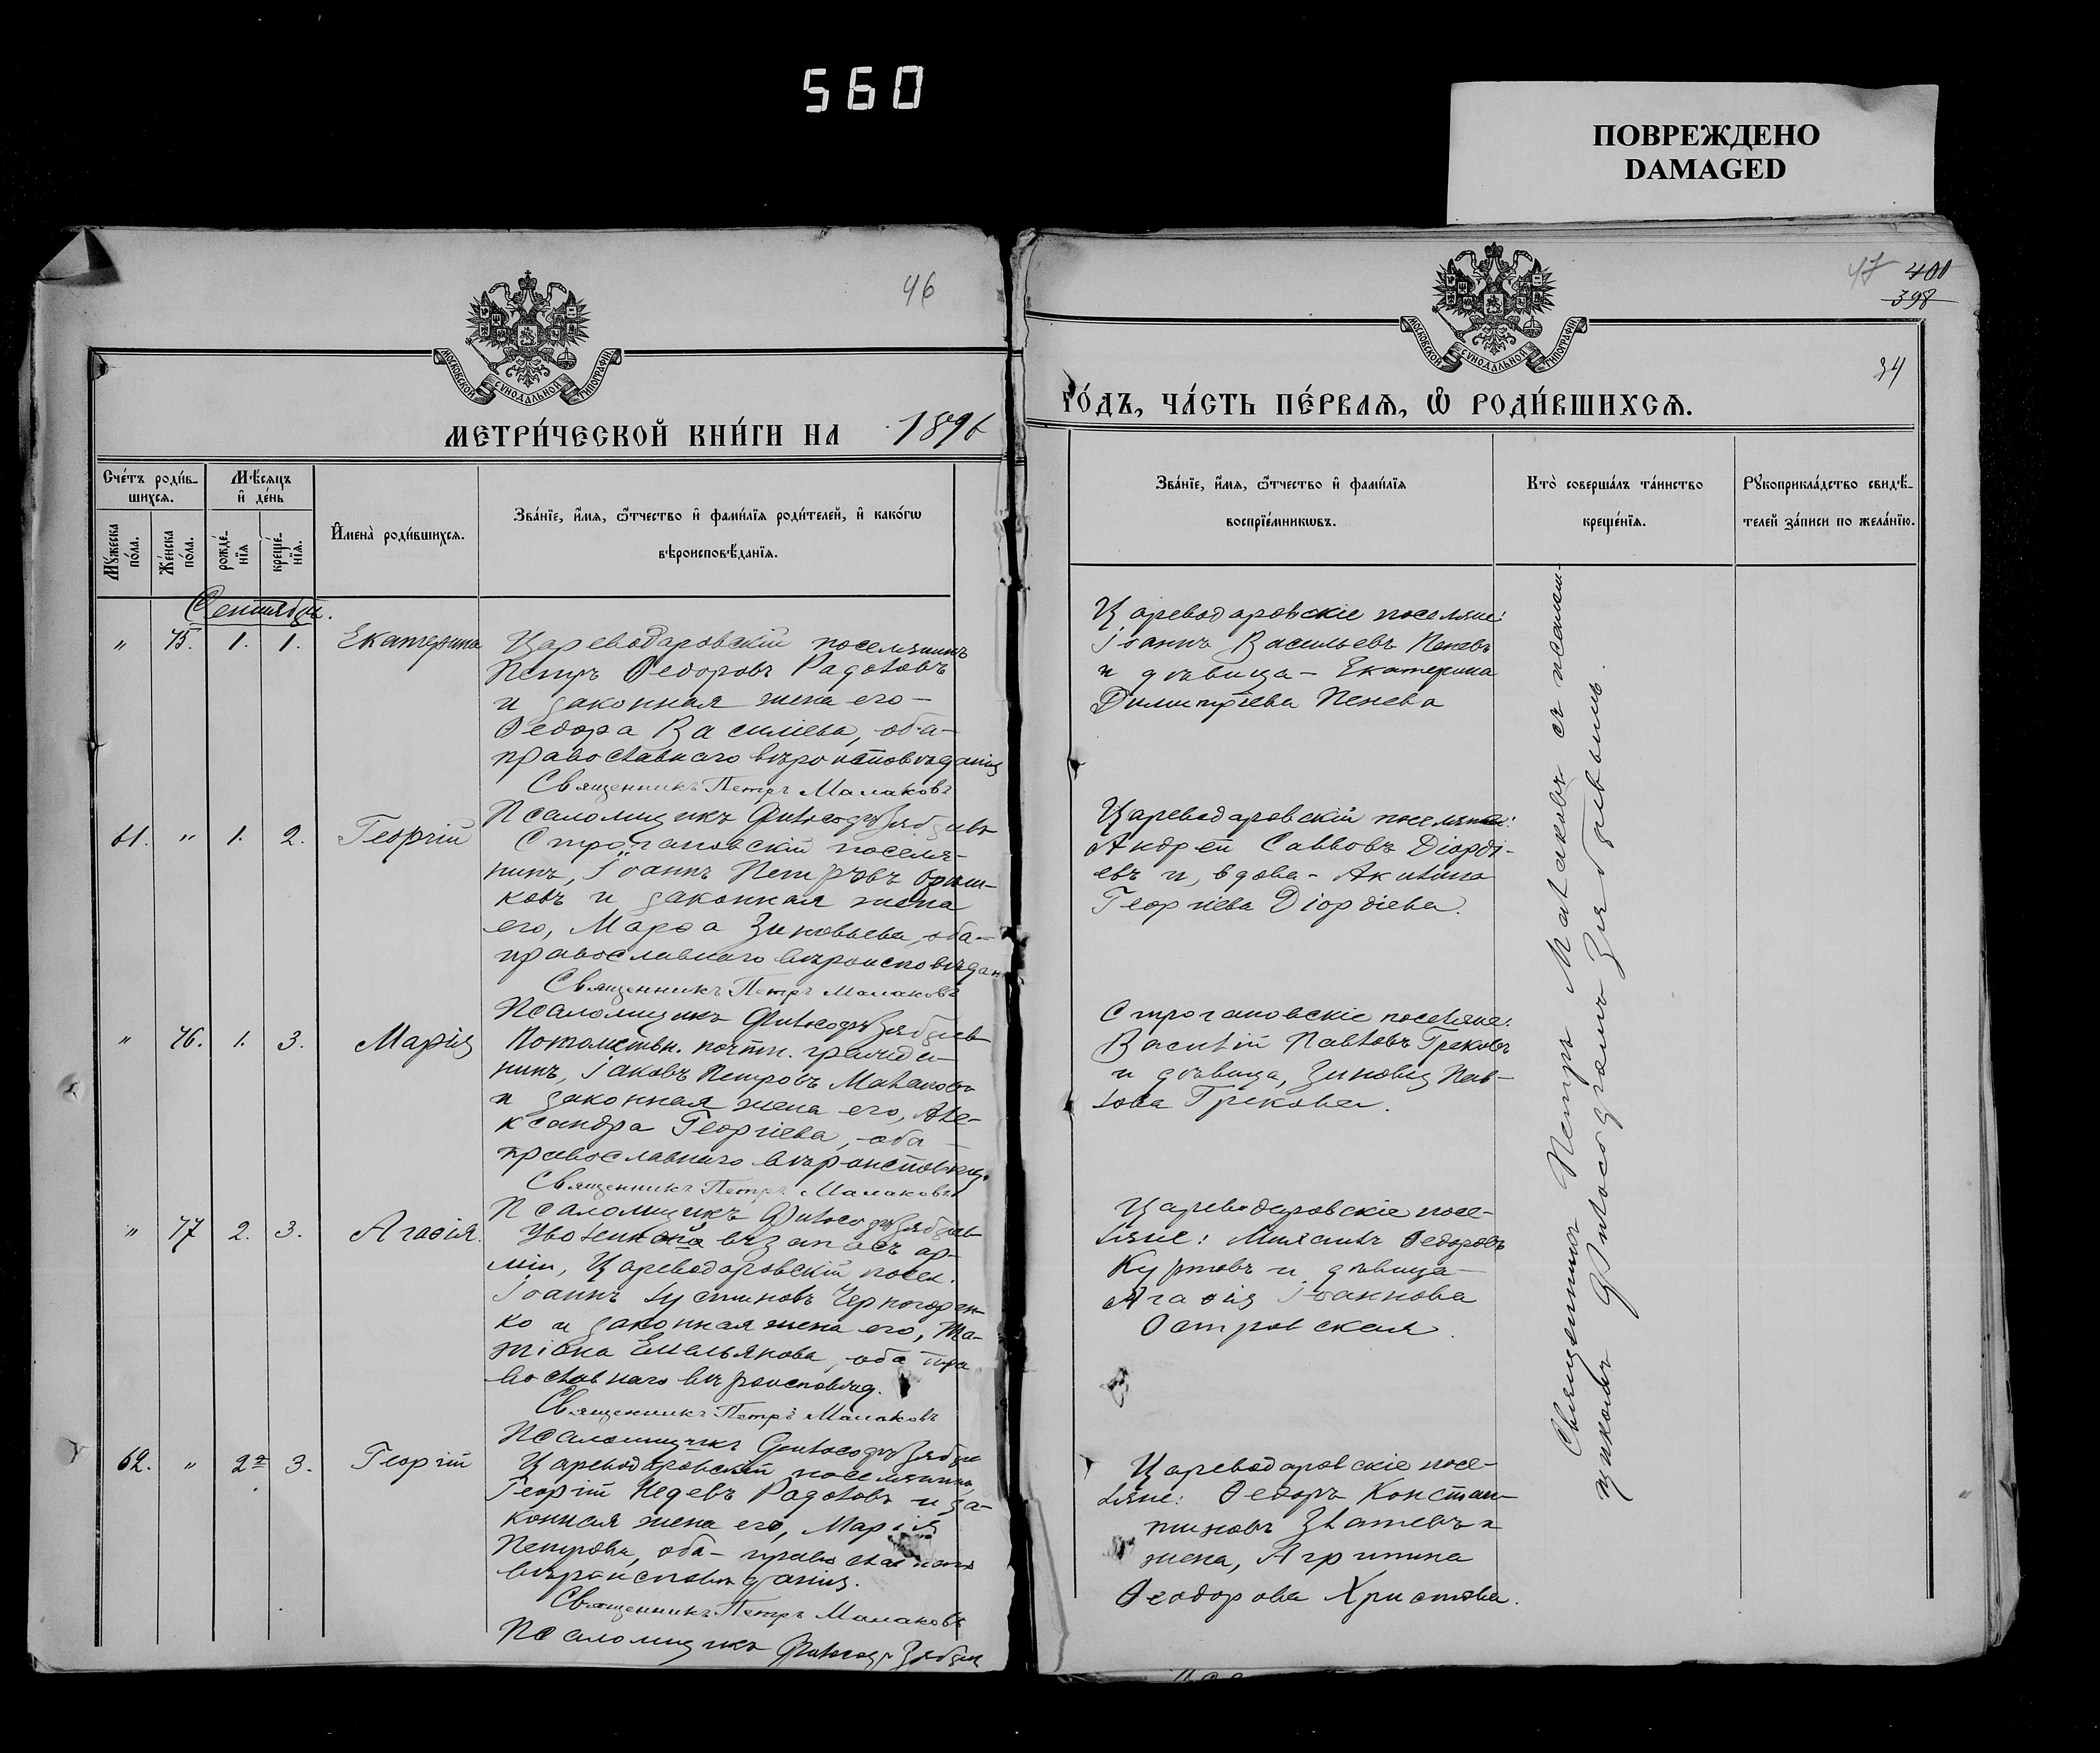 560
ПОВРЕЖДЕНО
DAMAGED
46
МОСКОВСКОЙ СѴНОДАЛЬНОЙ ТИПОГРАФІИ
МЕТРИ́ЧЕСКОЙ КНИ́ГИ НА 1896
Сче́тъ роди́в-
шихся.
Мѣ́сяцъ
и҆ де́нь
Мꙋ́жеска
по́ла.
Же́нска
по́ла.
рожде́-
нїя
креще́-
нїя.
И҆мена̀ роди́вшихся.
Зва́нїе, и҆́мя, ѻ҆́тчество и҆ фами́лїя роди́телей, и҆ како́гѡ
вѣроисповѣ́данїя.
Сентябрь.
„ 75. 1. 1. Екатерина
Цареводаровскій поселянинъ
Петръ Ѳедоровъ Радоловъ
и законная жена его –
Ѳедора Василіева, оба –
православнаго вѣроисповѣданія
Священникъ Петръ Малаковъ
Псаломщикъ
61. „ 1. 2. Георгій
Строгановскій поселя-
нинъ, Іоаннъ Петровъ
ковъ и законная жена
его, Марѳа Зиновьева, оба –
православнаго вѣроисповѣдан
Священникъ Петръ Малаковъ
Псаломщикъ
„ 76. 1. 3. Марія
Потомствн. почтн. гражда-
нинъ, Іаковъ Петровъ Малаковъ
и законная жена его, Але-
ксандра Георгіева, оба –
православнаго вѣроисповѣд.
Священникъ Петръ Малаковъ
Псаломщикъ
„ 77 2. 3. Агаѳія.
въ запасъ ар-
міи, Цареводаровскій посел.
Іоаннъ Іустиновъ Черногорен-
ко и законная жена его, Та-
тіана Емельянова, оба пра
вославнаго вѣроисповѣд.
Священникъ Петръ Малаковъ
Псаломщикъ
62. „ 2 3. Георгій
Цареводаровскій поселянинъ,
Георгій Недевъ Радоловъ и за-
конная жена его, Марія
Петрова, оба – православнаго
вѣроисповѣданія.
Священникъ Петръ Малаковъ
Псаломщикъ
47 400
398
34
МОСКОВСКОЙ СѴНОДАЛЬНОЙ ТИПОГРАФІИ
ГО́ДЪ, ЧА́СТЬ ПЕ́РВАЯ, Ѡ҆ РОДИ́ВШИХСЯ.
Зва́нїе, и҆́мя, ѻ҆́тчество и҆ фами́лїя
воспрїе́мникѡвъ.
Кто̀ соверша́лъ та́инство
креще́нїя.
Рꙋкоприкла́дство свидѣ́-
телей за́писи по жела́нїю.
Цареводаровскіе поселяне:
Іоаннъ Васильевъ Пеневъ
и дѣвица – Екатерина
Димитріева Пенева
Цареводаровскій поселяне:
Андрей Саввовъ Діорді-
евъ и, вдова – Акилина
Георгіева Діордіева.
Строгановскіе поселяне:
Василій Павловъ Грековъ
и дѣвица, Зиновія Пав-
лова Грекова.
Цареводаровскіе посе-
ляне: Ѳедоровъ
Куртовъ и дѣвица –
Агаѳія Іоаннова
Островская.
Цареводаровскіе посе-
ляне: Ѳедоръ Констан-
тиновъ Златевъ и
жена, Агрипина
Ѳеодорова Христова.
Священникъ Петръ Малаковъ съ псалом-
щикомъ